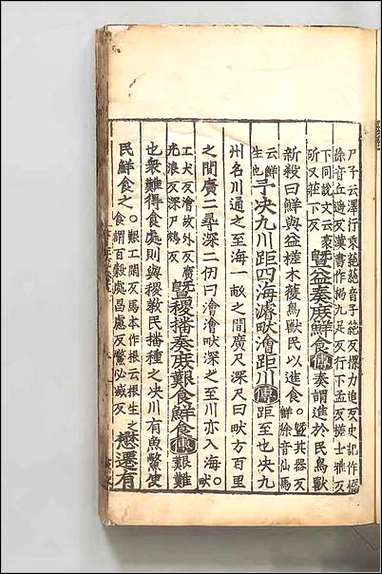 尸子云澤行乘蕝蕝音子絶反樏力追反史記作橋
徐音丘遥反漢書作梮九足反行下孟反槎士雅反
下同說文云衺斫
斫又莊下反
曁益奏庶鮮食傳奏謂進於民鳥獸
新殺曰鮮與益槎木獲鳥獸民以進食○曁其器反
鮮徐音仙馬
云鮮
生也
予决九川距四海濬畎澮距川傳距至也决九
州名川通之至海一畝之間廣尺深尺曰畎方百里
之間廣二尋深二仞曰澮澮畎深之至川亦入海○畎
工犬反澮故外反廣
光浪反深尸鴆反
曁稷播奏庶艱食鮮食傳艱難
也衆難得食處則與稷教民播種之决川有魚鼈使
民鮮食之○艱工閑反馬本作根云根生之
食謂百穀處昌慮反鼈必滅反
懋遷有